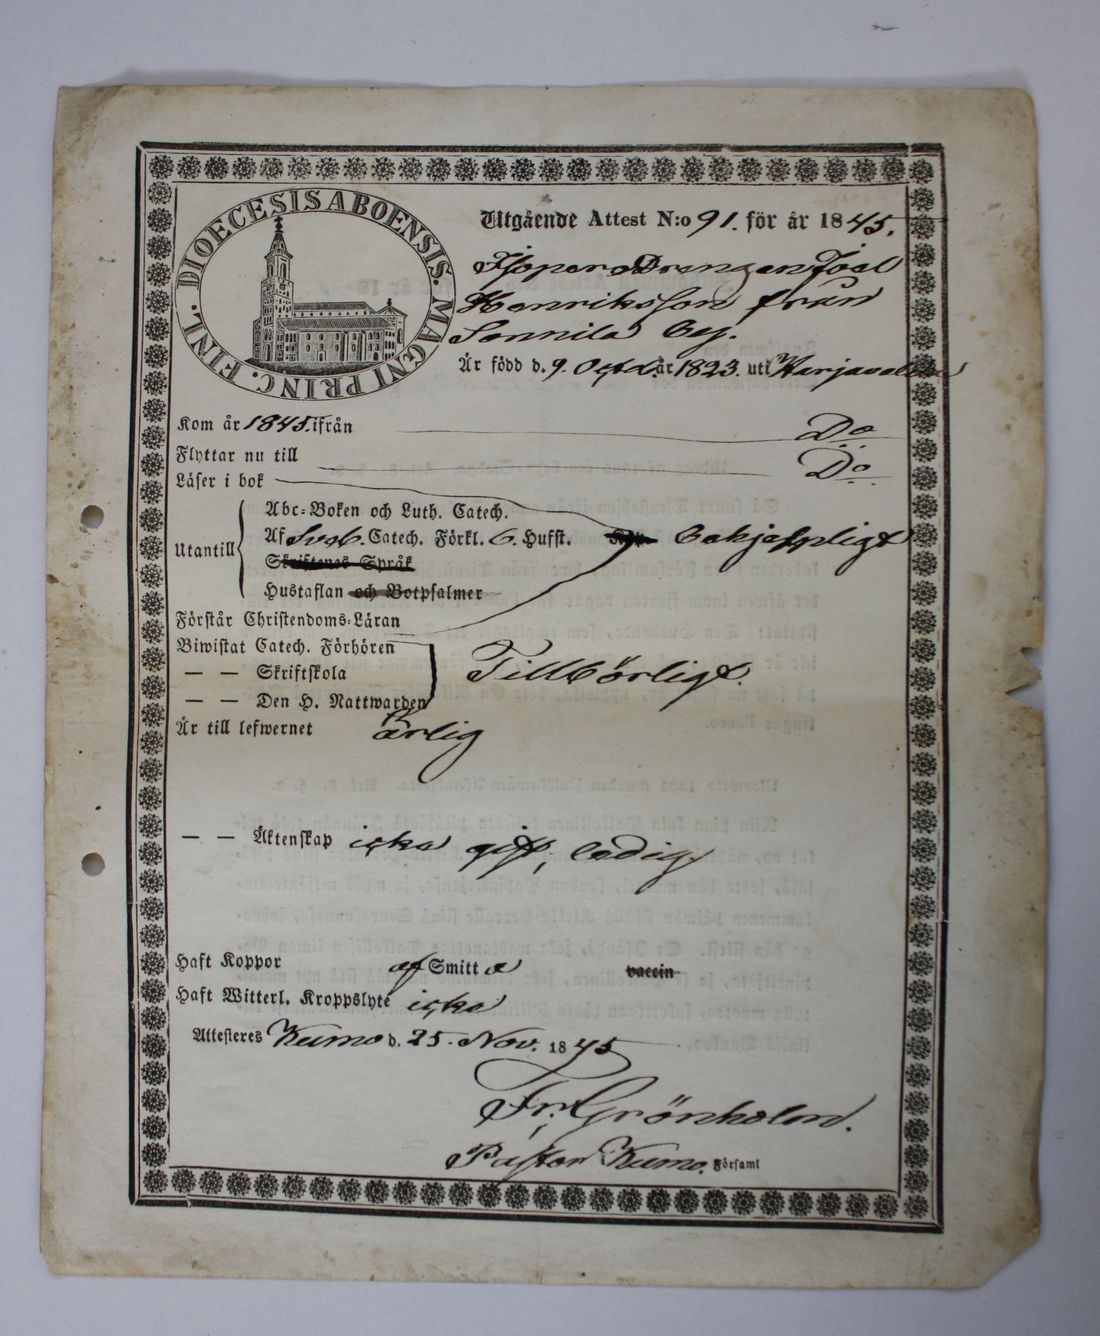 DIOECESIS ABOENSIS MAGNI PRINC. FINL.
Utgående Attest N:o 91. för år 1845.
Drengen Joel
Henriksson från
Sonnila by.
Är född d. 9. Oct. år 1823. uti Harjavalta
Kom år 1845. ifrån Do
Flyttar nu till Do
Läser i bok
Abc-Boken och Luth. Catech.
Utantill Af Sveb. Catech. Förkl. 6. Hufst.
Skriftenes Språk
Hustaflan och Botpsalmer
Förstår Christendoms-Läran
Biwistat Catech. Förhören
— — Skriftskola Tillbörligt.
— — Den H. Nattwarden
Är till lefwernet ärlig
— — Äktenskap icke gift, ledig
Haft Koppor af Smitta vaccin
Haft Witterl. Kroppslyte icke
Attesteres Kumo d. 25. Nov. 1845
Fr. Grönholm.
Pastor Kumo. Församl